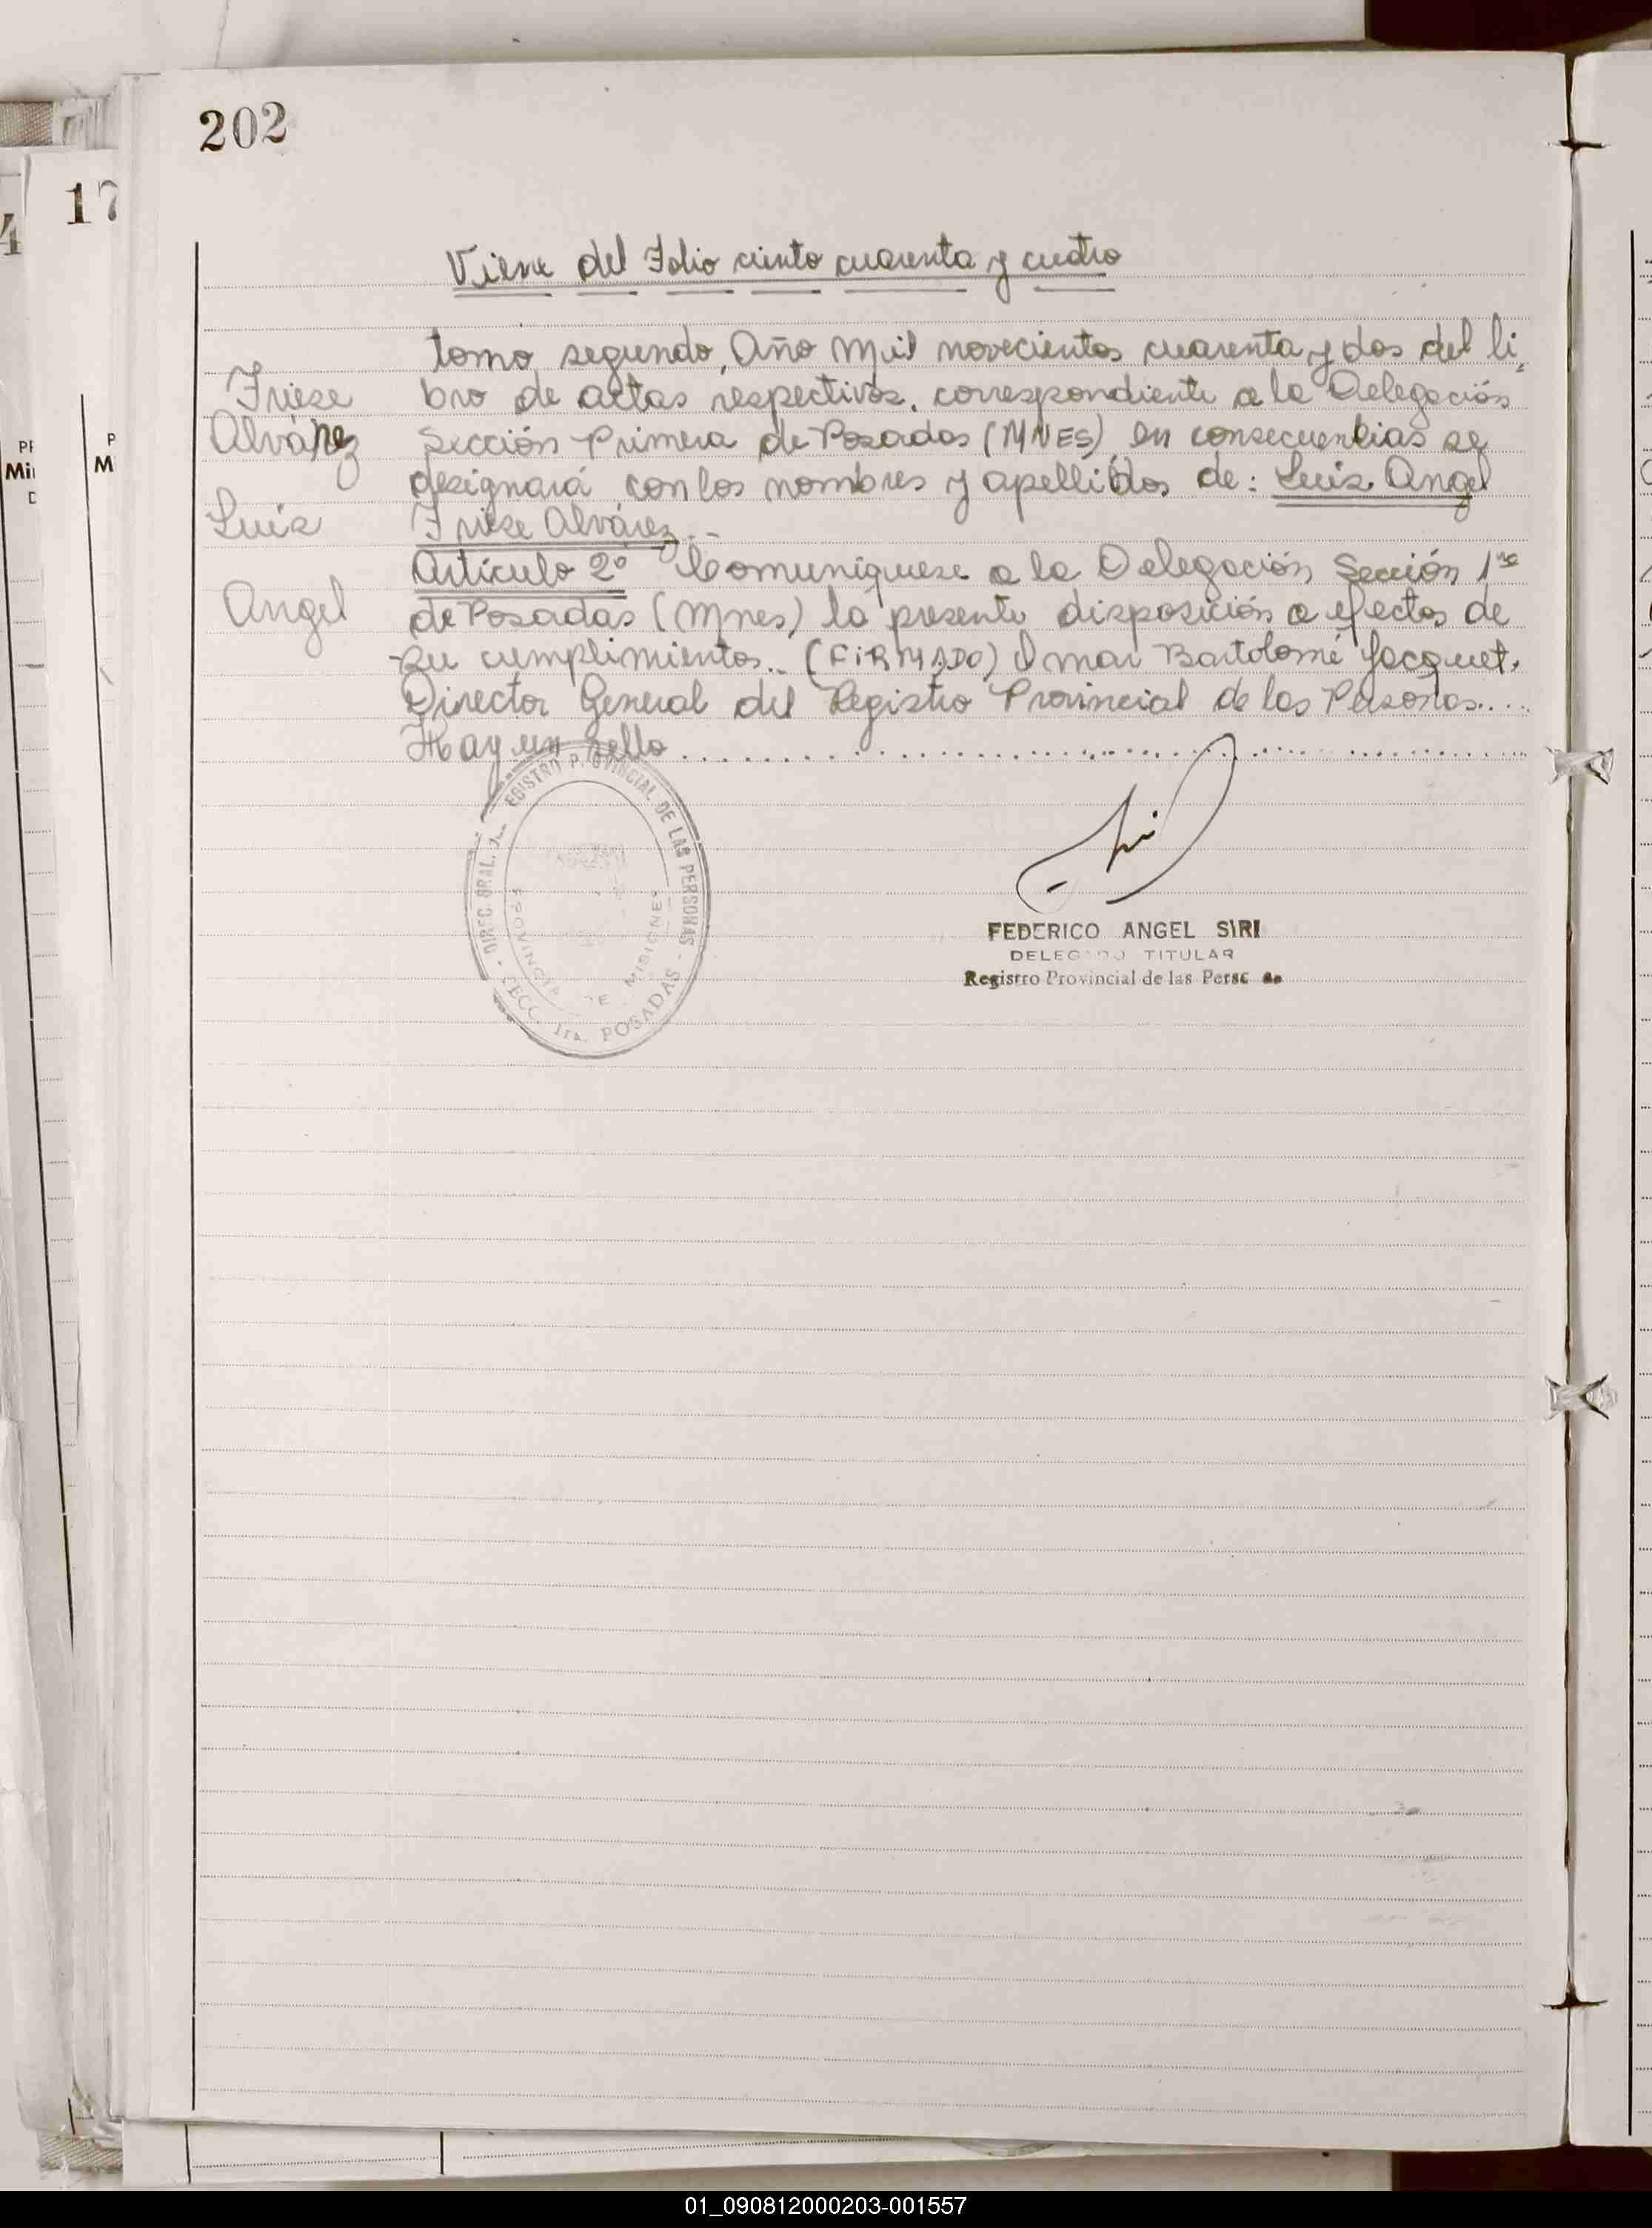 202
17
Viene del Folio ciento cuarenta y cuatro
tomo segundo, Año Mil novecientos cuarenta y dos del li-
Friese
bro de actas respectivos, correspondiente a la Delegación
Alvárez
Sección Primera de Posadas (MNES) en consecuencias se
designará con los nombres y apellidos de: Luis Angel
Luis
Friese Alvárez.-
Artículo 2º Comuníquese a la Delegación Sección 1ra
Angel
de Posadas (Mnes) la presente disposición a efectos de
su cumplimientos.. (FIRMADO) Omar Bartolomé Jacquet.
Director General del Registro Provincial de las Personas....
Hay un sello..............................
DIREC. GRAL. REGISTRO PROVINCIAL DE LAS PERSONAS - SECC. 1ra. POSADAS -
PROVINCIA DE MISIONES
FEDERICO ANGEL SIRI
DELEGADO TITULAR
Registro Provincial de las Personas
01_090812000203-001557